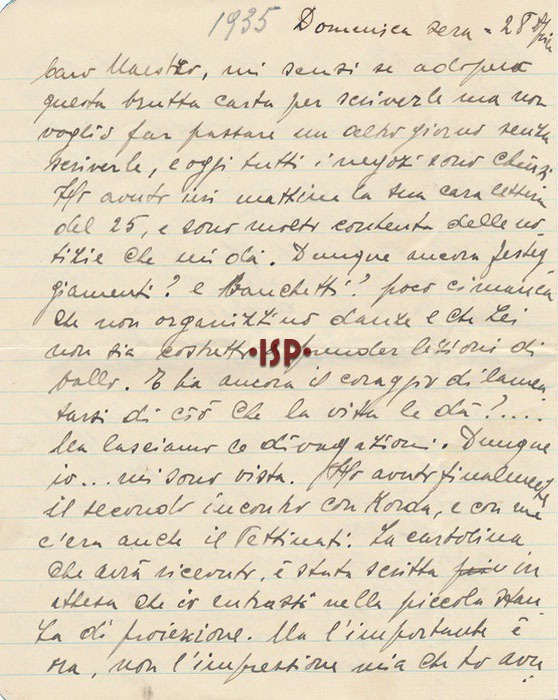 1935 Domenica sera = 28 Aprile
Caro Maestro, mi scusi se adopero
questa brutta carta per scriverle ma non
voglio far passare un altro giorno senza
scriverle, e oggi tutti i negozi sono chiusi
Ho avuto ieri mattina la sua cara letterina
del 25, e sono molto contenta delle no-
tizie che mi dà. Dunque ancora festeg-
giamenti? e Banchetti? poco ci manca
che non organizzino danze e che Lei
non sia costretto prender lezioni di
ballo. E ha ancora il coraggio di lamen
tarsi di ciò che la vita le dà?....
Ma lasciamo le divagazioni. Dunque
io... mi sono vista. Ho avuto finalmente
il secondo incontro con Korda, e con me
c'era anche il Pettinati. La cartolina
che avrà ricevuto, è stata scritta in
attesa che io entrassi nella piccola stan
za di proiezione. Ma l'importante è
ora, non l'impressione mia che ho avu
·ISP·